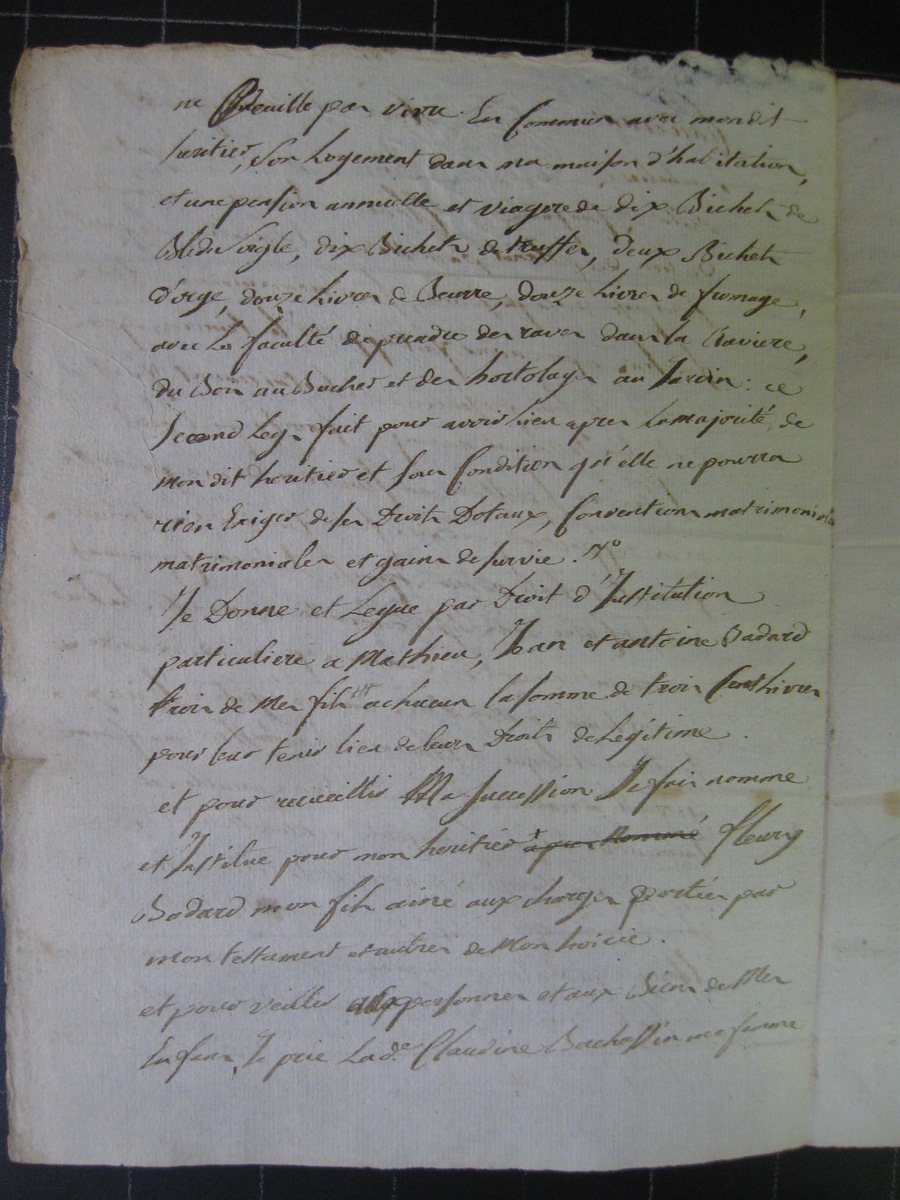 ne veuille pas vivre En Commun avec mondit
heritier, son Logement dans ma maison d'habitation,
et une pension annuelle et viagere de dix Bichets de
Bled Seigle, dix Bichets de truffes, deux Bichets
d'orge, douze livres de Beurre, douze livres de fromage,
avec La faculté de prendre des raves dans la Raviere,
du Bois au Bucher et des hortolages au Jardin : ce
second Legs fait pour avoir lieu apres La majorité, de
mon dit heritier et sous Condition qu'elle ne pourra
rien Exiger de ses Droits Dotaux, Convention matrimoniales
matrimoniales et gains de survie .
Je Donne et Legue par Droit d'Institution
particuliere a Mathieu, Jean et antoine Badard
trois de Mes fils a chacun la somme de trois Cents livres
pour leur tenir lieu de leurs Droits de Légitime .
et pour recueillir Ma succession Je fais nomme
et Institue pour mon heritier Fleury
Bodard mon fils ainé aux charges portées par
mon testament et autres de Mon hoirie .
et pour veiller aux personnes et aux Biens de Mes
Enfans, Je prie Lad.e Claudine Bachassin ma femme